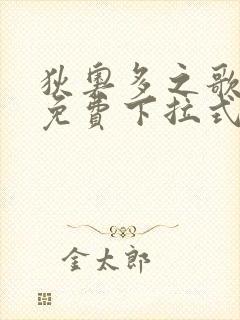 狄奧多之歌
免費下拉式
金太郎